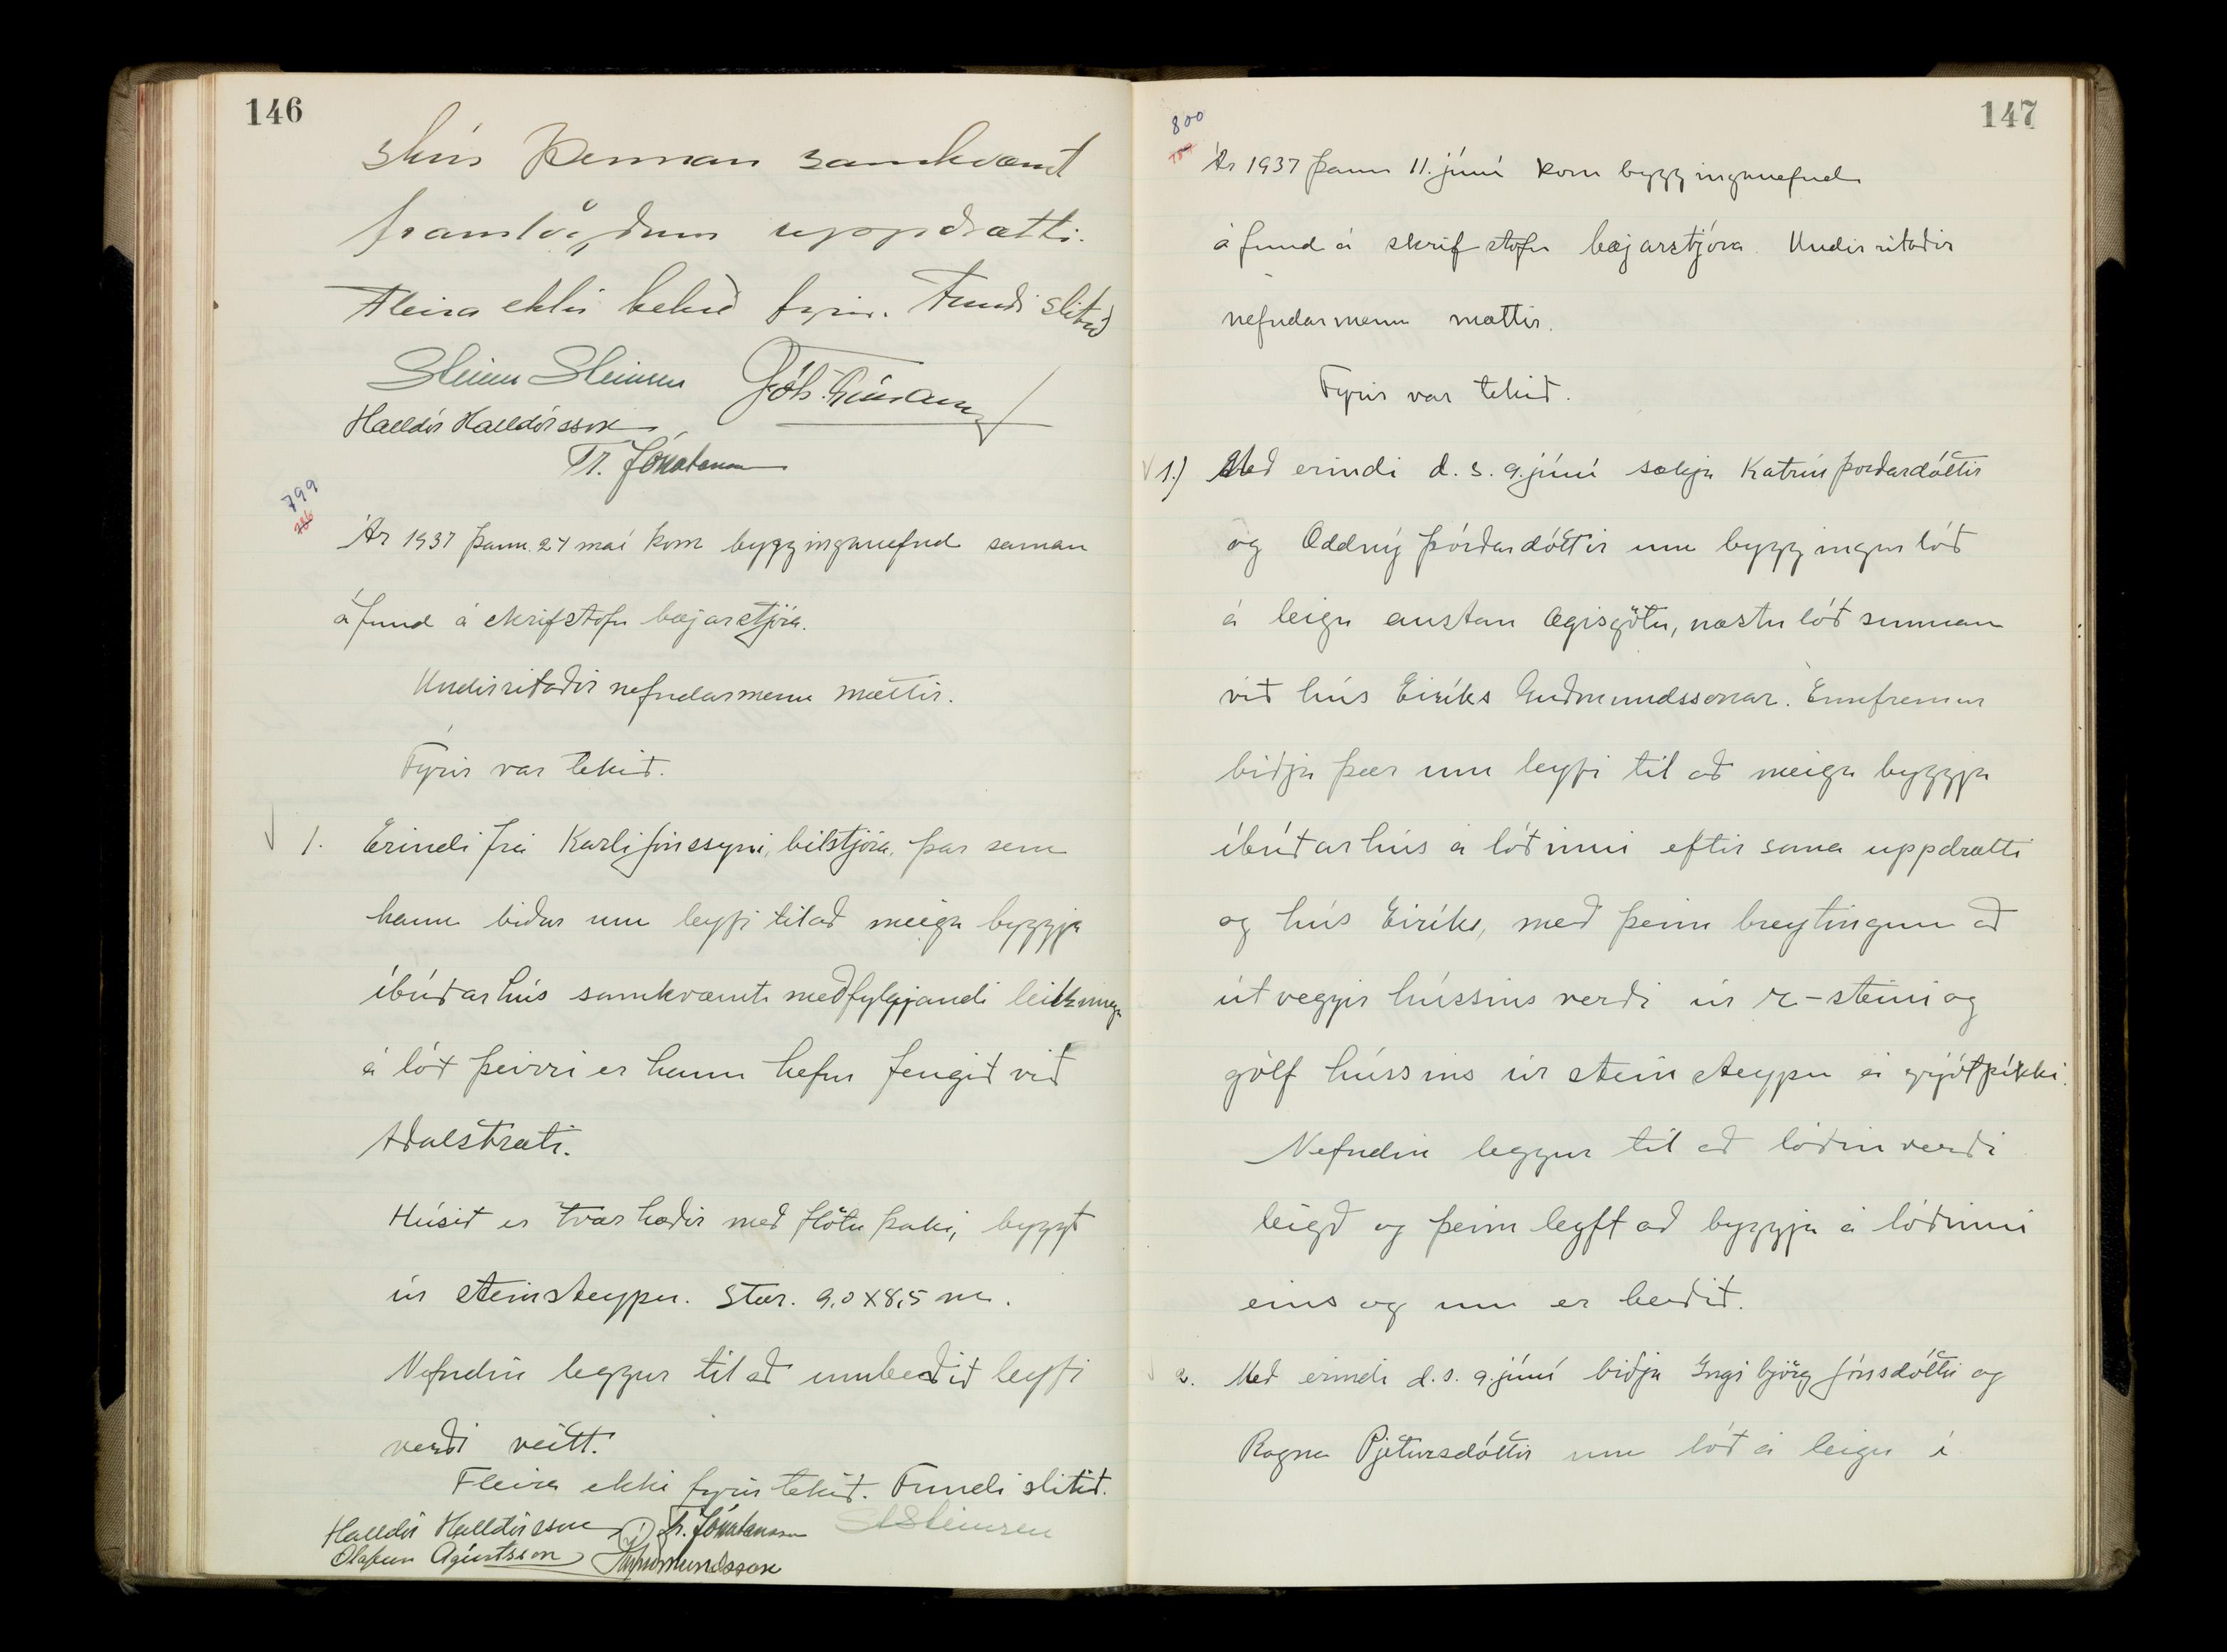 146
skúr þennan samkvæmt
framlögðum uppdrætti.
Fleira ekki tekið fyrir. Fundi slitið
Steinn Steinsen
Halldór Halldórsson
Tr. Jónatansson
799
786
Ár 1937 þann 24 maí kom bygginganefnd saman
á fund á skrifstofu bæjarstjóra.
Undirritaðir nefndarmenn mættir.
Fyrir var tekið.
1. Erindi frá Karli Jónssyni, bílstjóra, þar sem
hann biður um leyfi til að meiga byggja
íbúðarhús samkvæmt meðfylgjandi teikningu
á lóð þeirri er hann hefur fengið við
Aðalstræti.
Húsið er tvær hæðir með flötu þaki, byggt
úr steinsteypu. Stær. 9,0 x 8,5 m.
Nefndin leggur til að umbeðið leyfi
verði veitt.
Fleira ekki fyrir tekið. Fundi slitið.
Halldór Halldórsson Tr. Jónatansson St Steinsen
Ólafur Ágústsson
147
800
Ár 1937 þann 11. júní kom bygginganefnd
á fund á skrifstofu bæjarstjóra. Undirritaðir
nefndarmenn mættir.
Fyrir var tekið.
1.) Með erindi d. s. 9. júní sækja Katrín Þórðardóttir
og Oddný Þórðardóttir um byggingarlóð
á leigu austan Ægisgötu, næstu lóð sunnan
við hús Eiríks Guðmundssonar. Ennfremur
biðja þær um leyfi til að meiga byggja
íbúðarhús á lóðinni eftir sama uppdrætti
og hús Eiríks, með þeim breytingum að
útveggir hússins verði úr r-steini og
gólf hússins úr steinsteypu á grjótpúkki.
Nefndin leggur til að lóðin verði
leigð og þeim leyft að byggja á lóðinni
eins og um er beðið.
2. Með erindi d.s. 9. júní biðja Ingibjörg Jónsdóttir og
Ragna Pjetursdóttir um lóð á leigu í